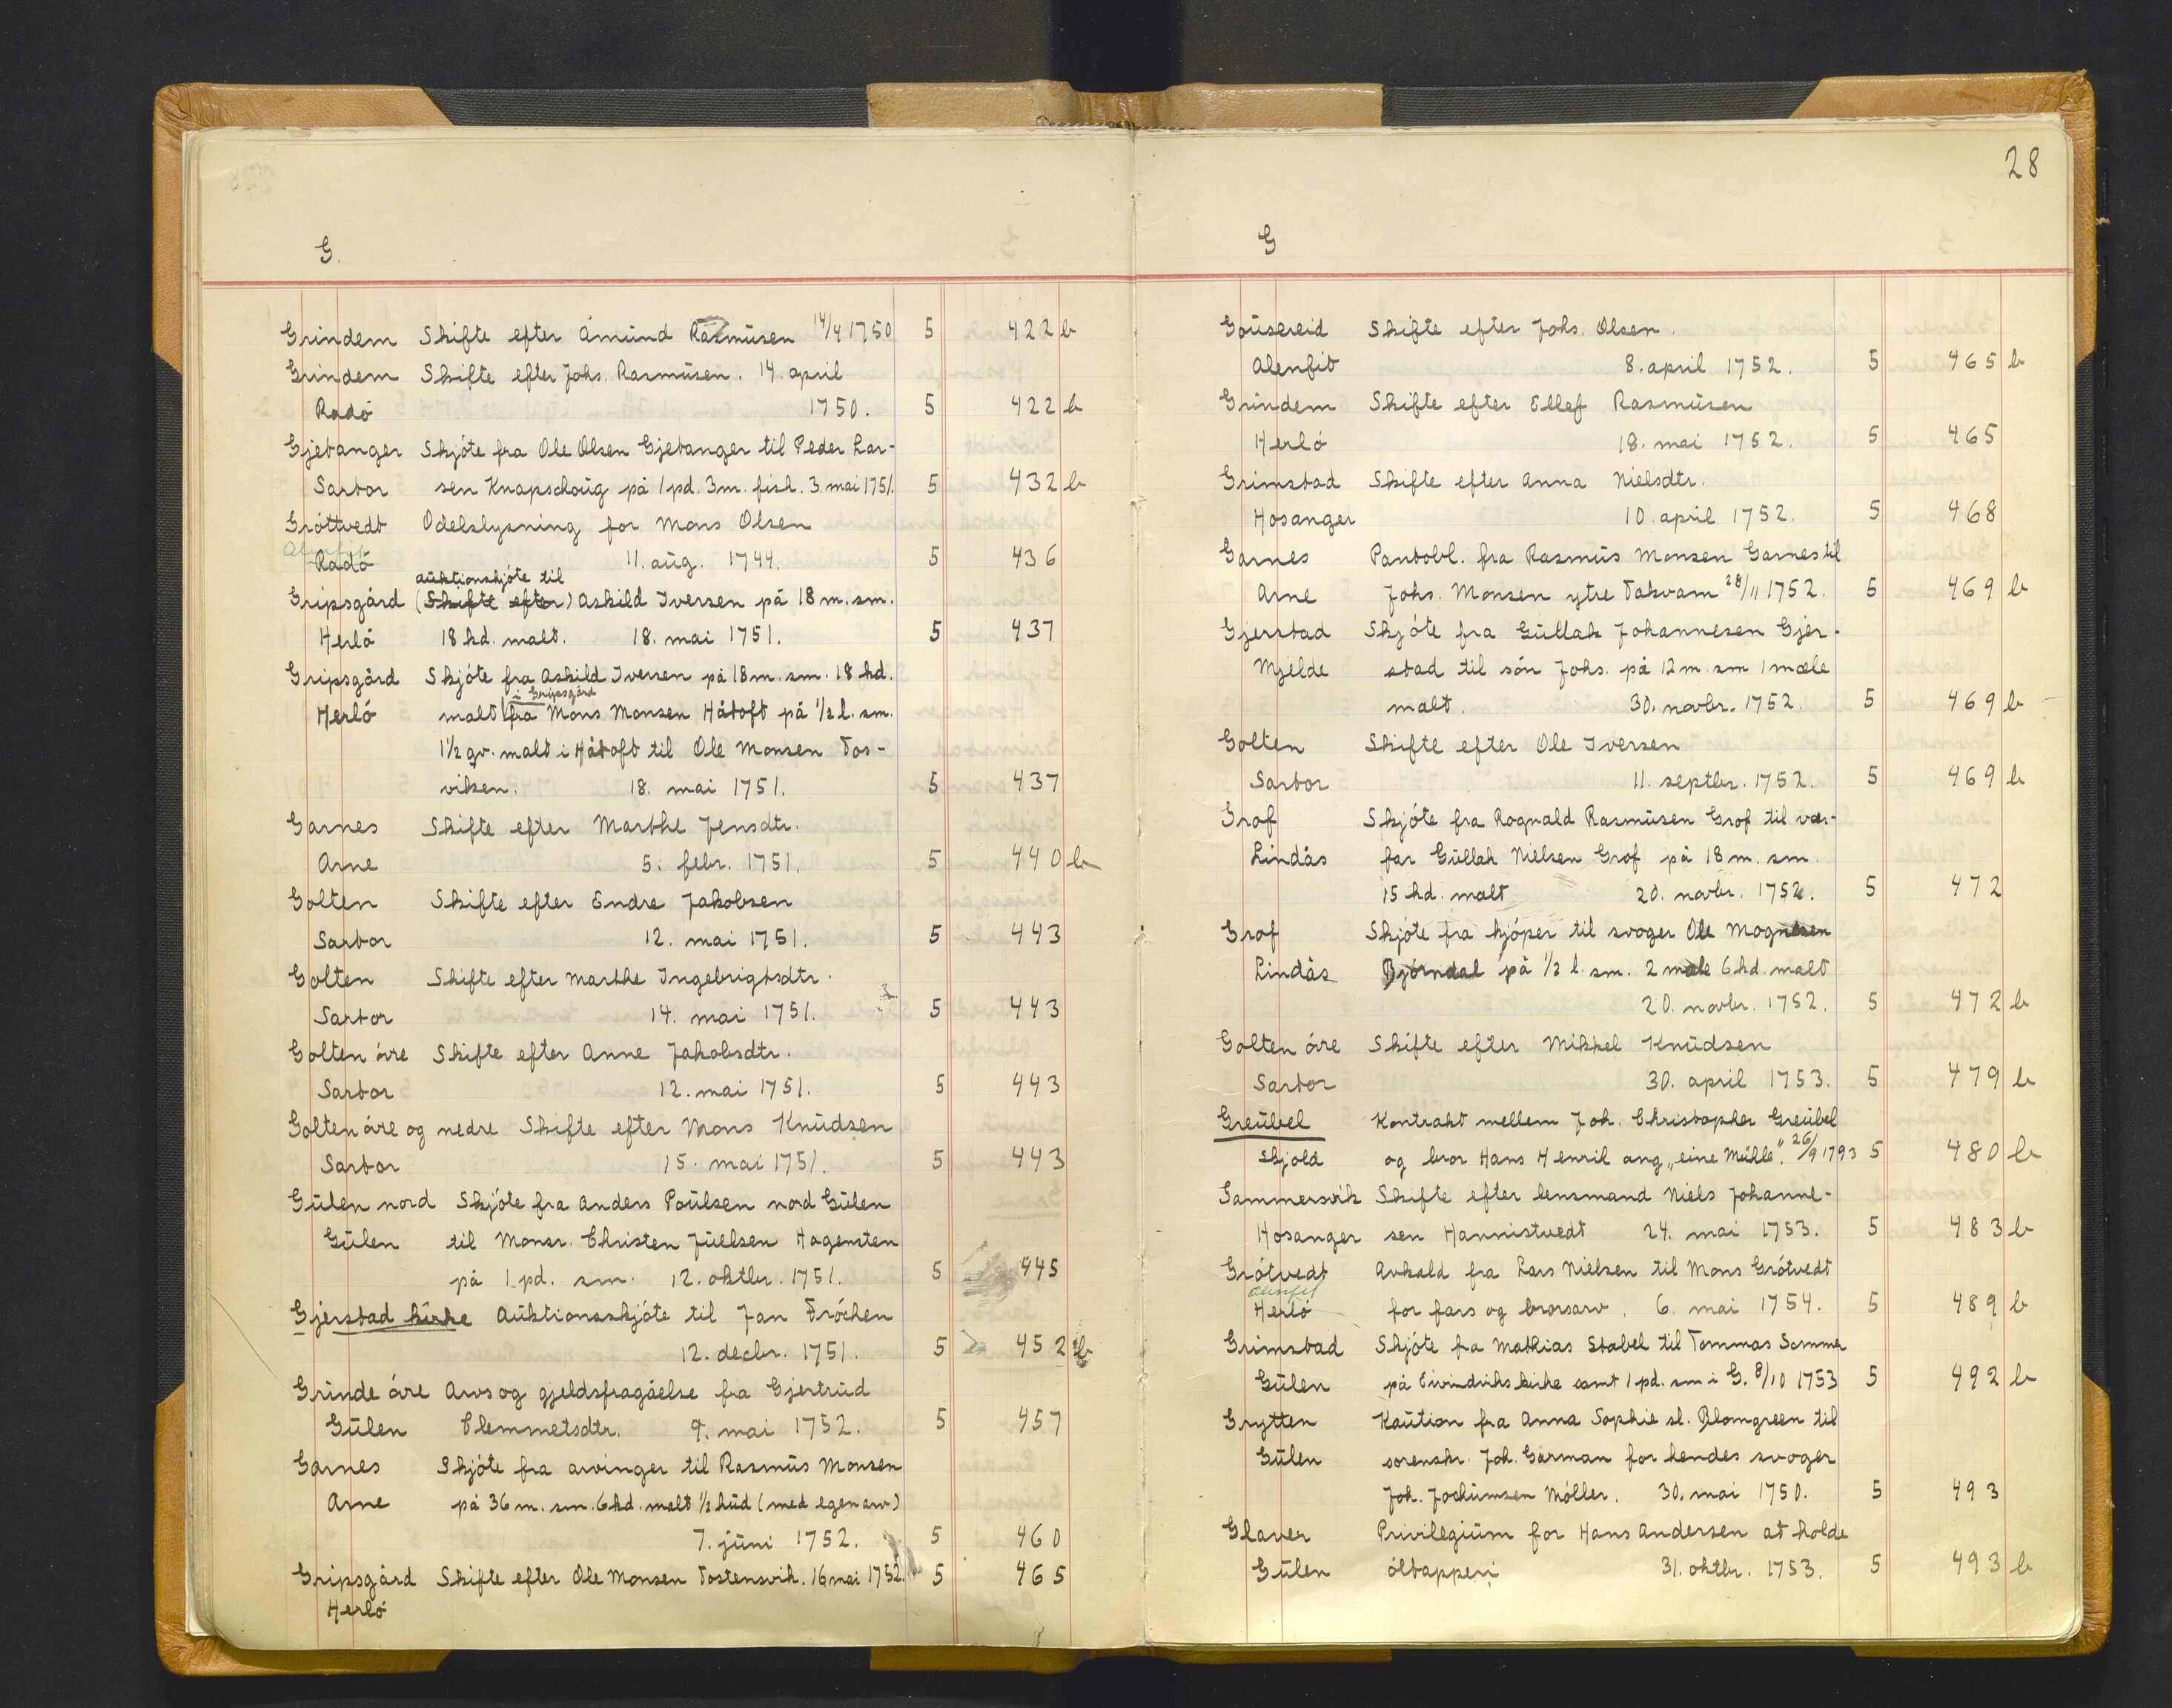 28
G.
Grindem Skifte efter Åmund Rasmusen 14/4 1750 5 422 b
Grindem Skifte efter Johs. Rasmusen. 14. april
Radö 1750. 5 422 b
Gjetanger Skjöte fra Ole Olsen Gjetanger til Peder Lar-
Sartor sen Knapschoug på 1 pd. 3 m. fisk. 3. mai 1751. 5 432 b
Gröttvedt Odelslysning for Mons Olsen
Alenfit Radö 11. aug. 1744. 5 436
auktionskjöte til
Gripsgård (Skifte efter) Askild Iversen på 18 m. sm.
Herlö 18 kd. malt. 18. mai 1751. 5 437
Gripsgård Skjöte fra Askild Iversen på 18 m. sm. 18 kd.
i Gripsgård
Herlö malt fra Mons Monsen Håtoft på 1/2 l. sm.
1 1/2 qv. malt i Håtoft til Ole Monsen Tos-
viken. 18. mai 1751. 5 437
Garnes Skifte efter Marthe Jensdtr.
Arne 5. febr. 1751. 5 440 b
Golten Skifte efter Endre Jakobsen
Sartor 12. mai 1751. 5 443
Golten Skifte efter Marthe Ingebrigtsdtr.
Sartor 14. mai 1751. 5 443
Golten övre Skifte efter Anne Jakobsdtr.
Sartor 12. mai 1751. 5 443
Golten övre og nedre Skifte efter Mons Knudsen
Sartor 15. mai 1751. 5 443
Gulen nord Skjöte fra Anders Poulsen nord Gulen
Gulen til Monsr. Christen Juelsen Hagensten
på 1 pd. sm. 12. oktbr. 1751. 5 445
Gjerstad kirke Auktionsskjöte til Jan Fröchen
12. decbr. 1751. 5 452 b
Grinde övre Arvs og gjeldsfragåelse fra Gjertrud
Gulen Clemmetsdtr. 9. mai 1752. 5 457
Garnes Skjöte fra arvinger til Rasmus Monsen
Arne på 36 m. sm. 6 kd. malt 1/2 hud (med egen arv)
7. juni 1752. 5 460
Gripsgård Skifte efter Ole Monsen Tostensvik. 16 mai 1752. 5 465
Herlö
G
Gousereid Skifte efter Johs. Olsen.
Alenfit 8. april 1752. 5 465 b
Grindem Skifte efter Ellef Rasmusen
Herlö 18. mai 1752. 5 465
Grimstad Skifte efter Anna Nielsdtr.
Hosanger 10. april 1752. 5 468
Garnes Pantobl. fra Rasmus Monsen Garnes til
Arne Johs. Monsen ytre Takvam 28/11 1752. 5 469 b
Gjerstad Skjöte fra Gullak Johannesen Gjer-
Mjelde stad til sön Johs. på 12 m. sm 1 mæle
malt. 30. novbr. 1752. 5 469 b
Golten Skifte efter Ole Iversen
Sartor 11. septbr. 1752. 5 469 b
Grof Skjöte fra Rognald Rasmusen Grof til vær-
Lindås far Gullak Nielsen Grof på 18 m. sm.
15 kd. malt 20. novbr. 1752. 5 472
Grof Skjöte fra kjöper til svoger Ole Mognesen
Lindås Bjørndal på 1/2 l. sm. 2 mæle 6 kd. malt
20. novbr. 1752. 5 472 b
Golten övre Skifte efter Mikkel Knudsen
Sartor 30. april 1753. 5 479 b
Greubel Kontrakt mellem Joh. Christopher Greubel
Skjold og bror Hans Henril ang „eine Mühle". 26/9 1793 5 480 b
Gammersvik Skifte efter lensmand Niels Johanne-
Hosanger sen Hannistvedt 24. mai 1753. 5 483 b
Grötvedt Avkald fra Lars Nielsen til Mons Grötvedt
Alenfit
Herlö for fars og brorsarv. 6. mai 1754. 5 489 b
Grimstad Skjöte fra Mathias Stabel til Tommas Sommer
Gulen på Eivindviks kirke samt 1 pd. sm i G. 8/10 1753 5 492 b
Grytten Kaution fra Anna Sophie sl. Blomgreen til
Gulen sorenskr. Joh. Garman for hendes svoger
Joh. Jochumsen Möller. 30. mai 1750. 5 493
Glaver Privilegium for Hans Andersen at holde
Gulen öltapperi 31. oktbr. 1753. 5 493 b